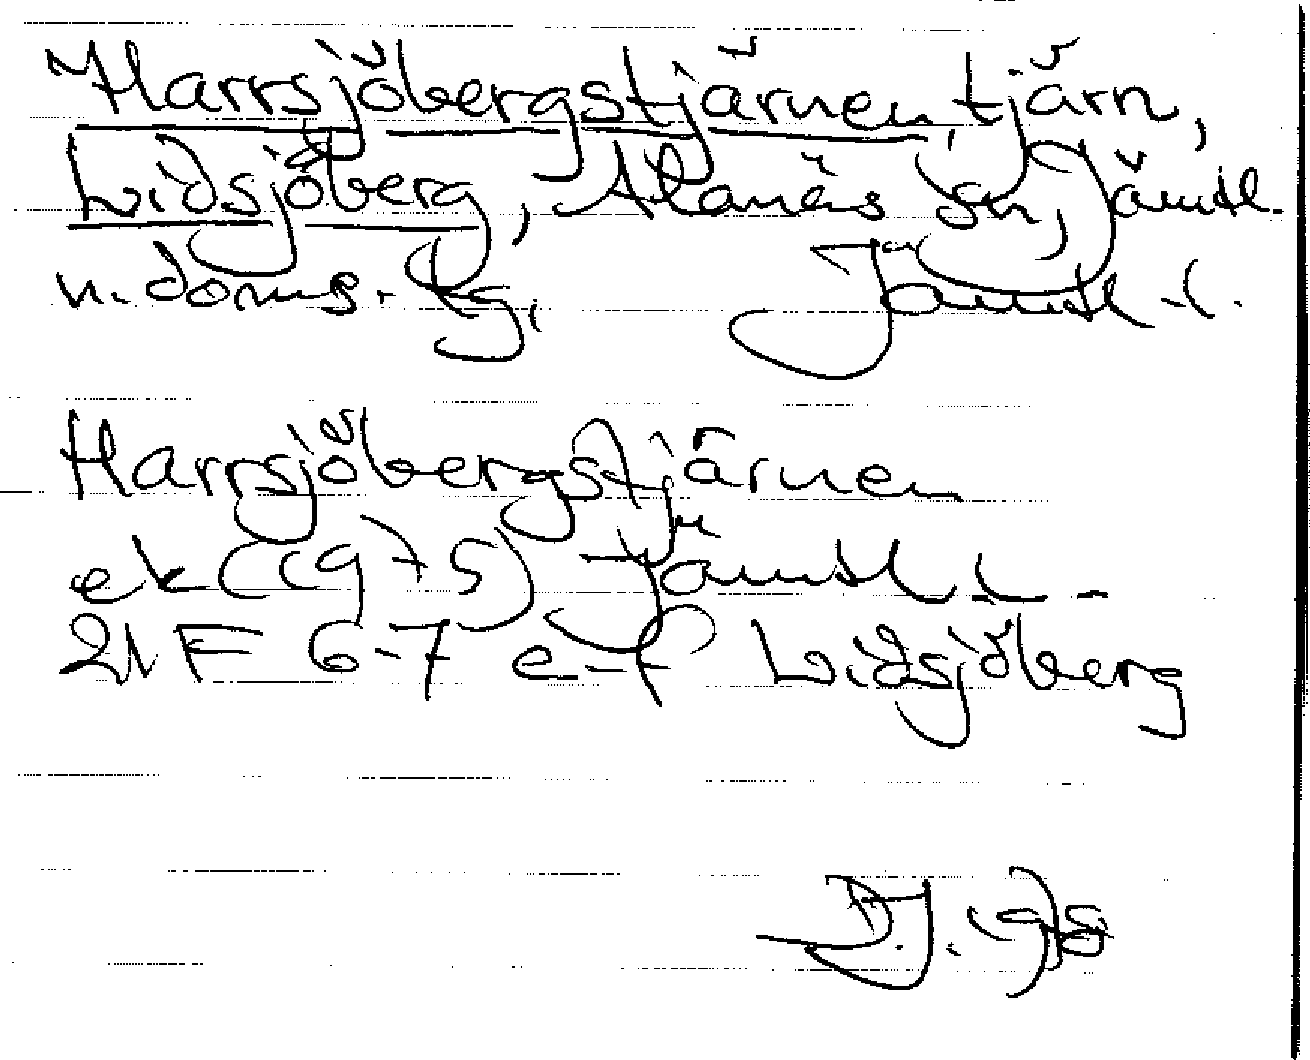 Harrsjöbergstjärnen, tjärn,
Lidsjöberg, Alanäs sn, Jämtl.
n. doms. tg, Jämtl. l.
Harrsjöbergstjärnen
ek (1975) Jämtl. L.
21 F 6-7 e-f Lidsjöberg